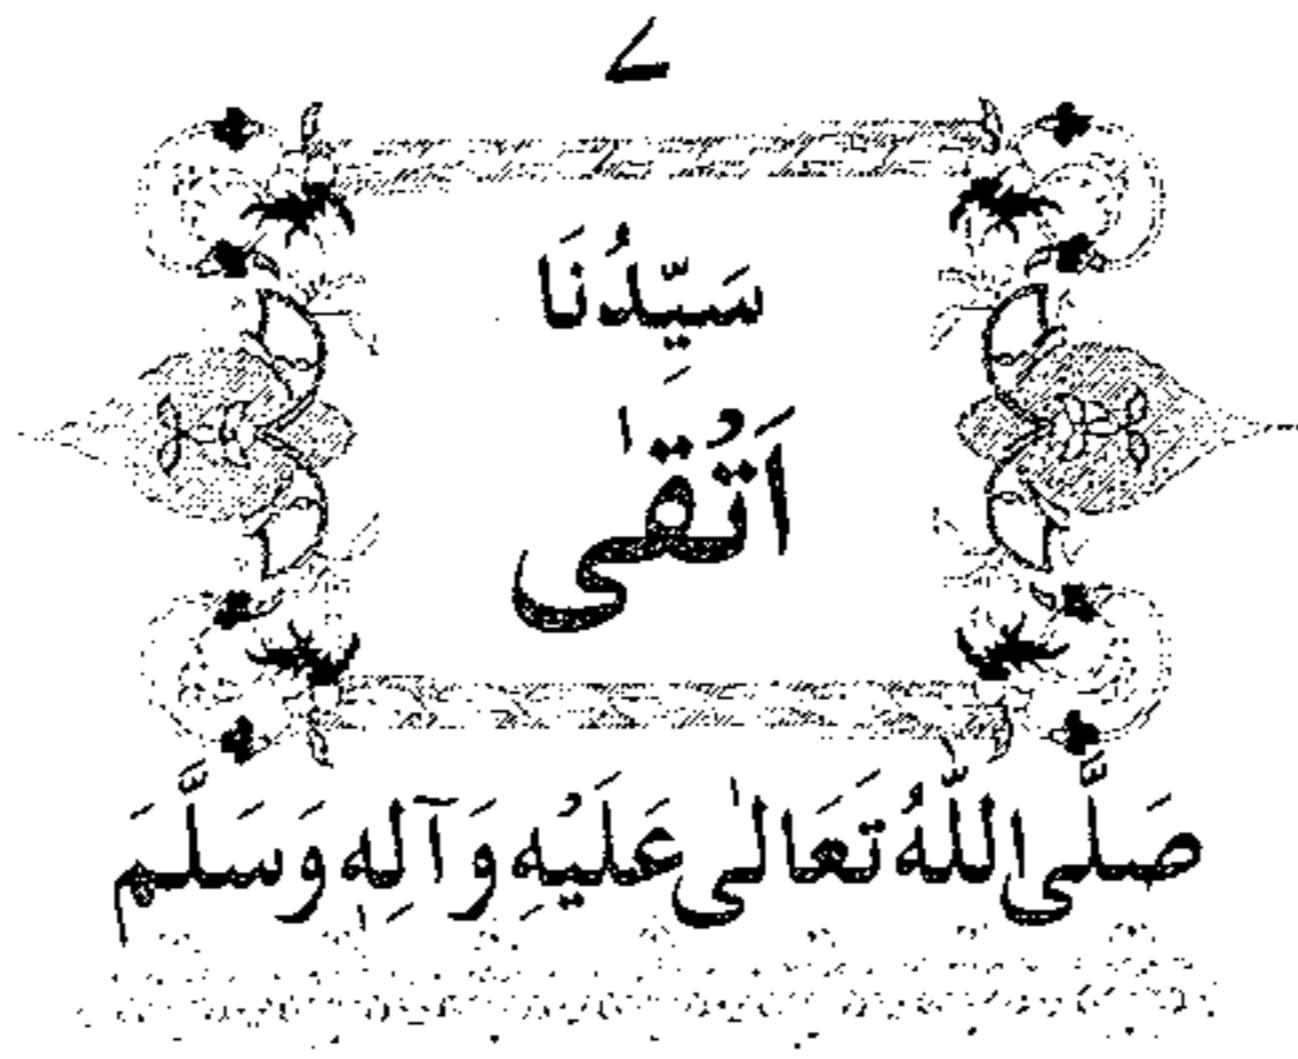 سَیِّدُنَا
اَتْقٰی
صَلَّی اللّٰهُ تَعَالٰی عَلَیْهِ وَآلِهٖ وَسَلَّمَ